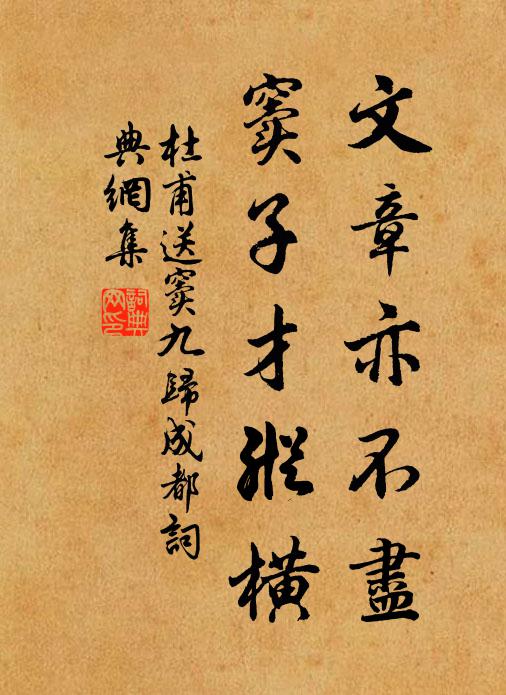 文章亦不盡
竇子才縱橫
杜甫送竇九歸成都詞
典網集
詞典網印